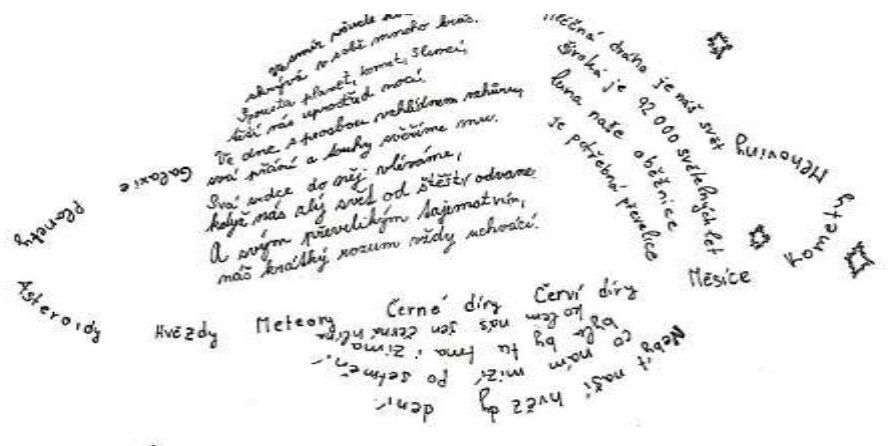 vesmír všude ko
skrývá v sobě mnoho krás.
Spousta planet, komet, Slunci,
těší nás uprostřed noci.
Ve dne s prosbou vzhlédnem vzhůru,
svá přání a touhy svěříme mu.
Svá srdce do něj vléváme,
když nás zlý svět od štěstí odvane
A svým převelikým tajemstvím,
náš krátký rozum vždy uchvátí.
Mléčná dráha je náš svět
široká je 92 000 světelných let
luna naše oběžnice
je potřebná převelice
Galaxie
Planety
Asteroidy
Hvězdy
Meteory
Černé díry
Červí díry
Měsíce
Komety
Mlhoviny
Nebýt naší hvězdy denní,
co nám mizí po setmění,
byla by tu tma i zima
kolem nás jen černá hlína